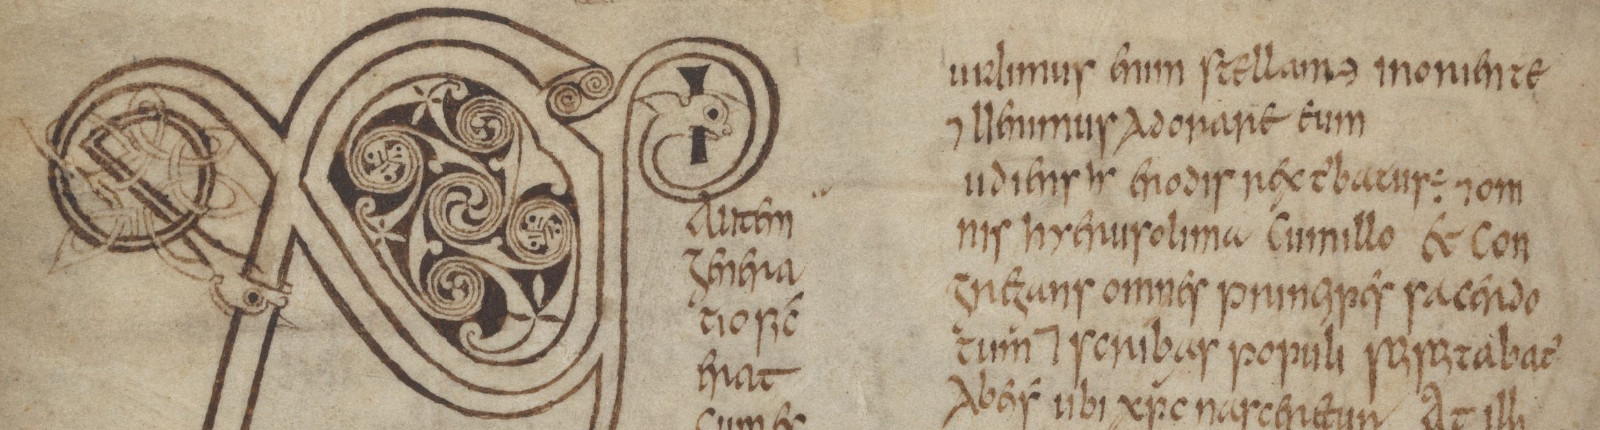 XPI
autem
genera
tio sic
erat
cum es
uidimus enim stellam ꝯ inoriente
⁊ uenimus adorare eum
udiens ħ erodis rex t'batus ÷ ⁊ om
nis hyerusolima Cum illo et Con
gregans omnes principes sacerdo
tum ⁊ scribas populi sciscitabat'
Ab eis ubi xp̄s nasceretur At illi